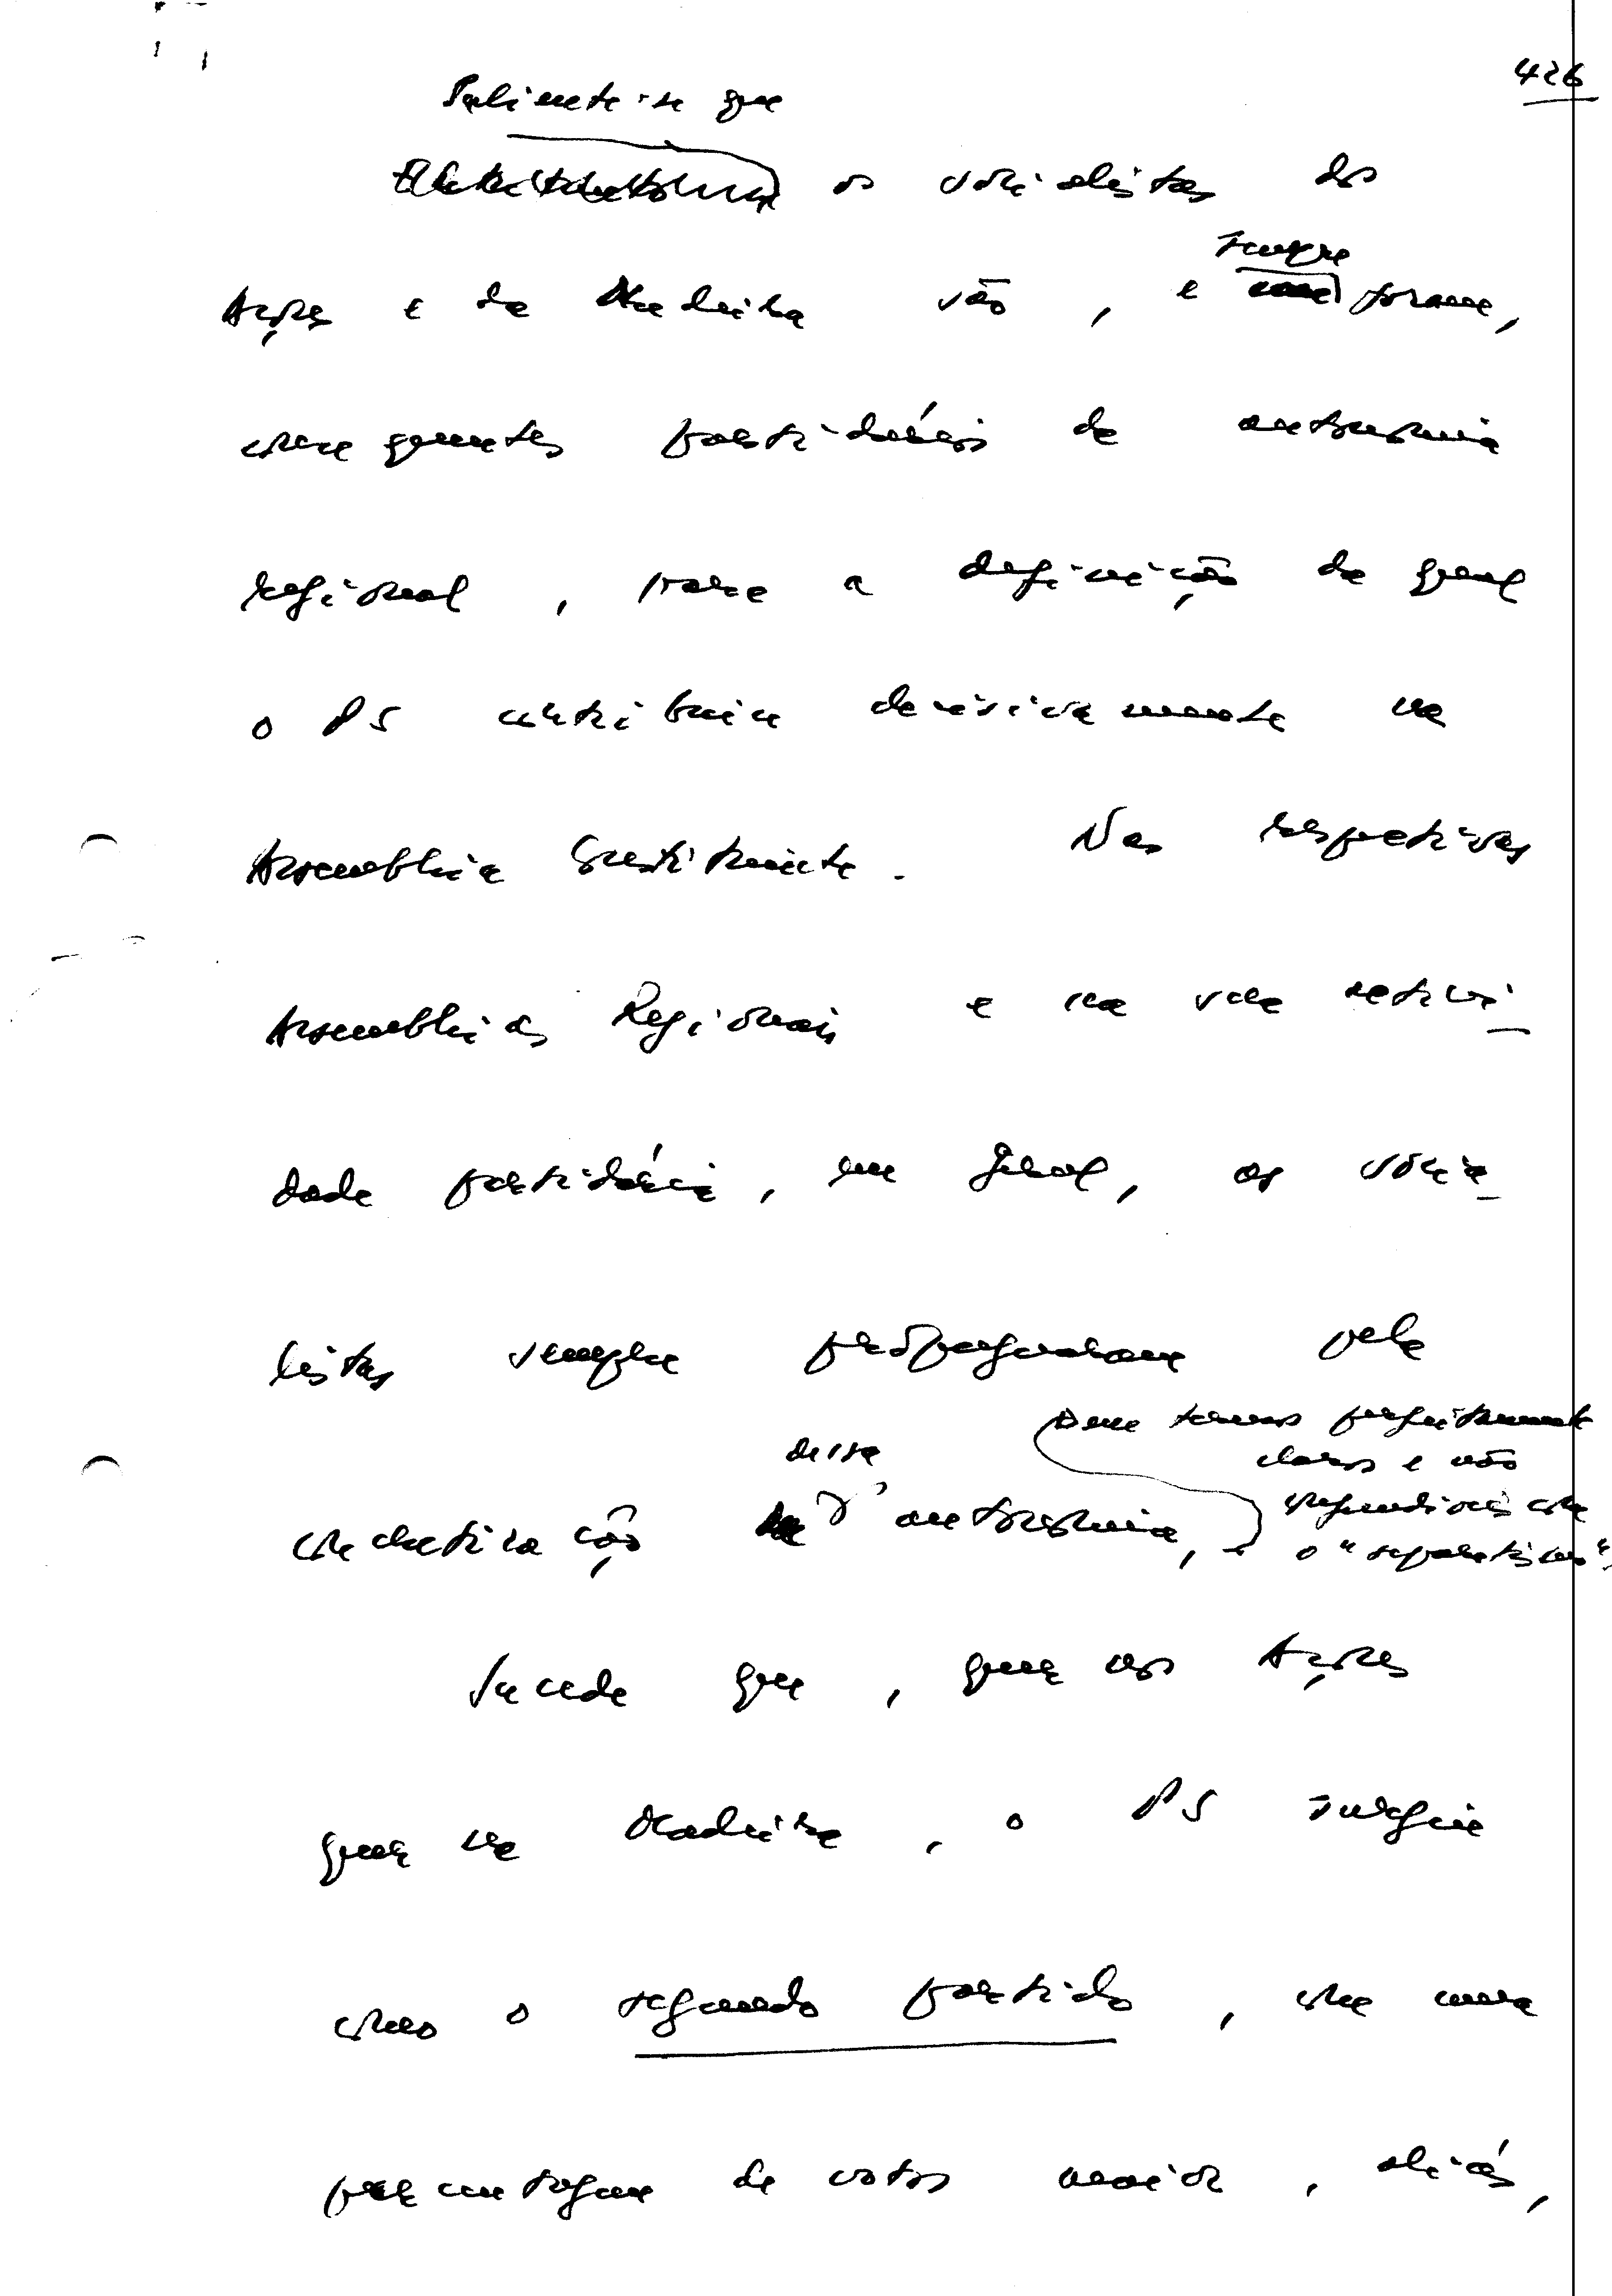 426
Saliente-se que
os socialistas dos
Açores e da Madeira são, e sempre foram,
convergentes partidários da autonomia
regional, para a definição da qual
o PS contribuiu decisivamente na
Assembleia Constituinte. Nas respectivas
Assembleias Regionais e na sua activi-
dade partidária, em geral, os socia-
listas sempre propugnaram pela
concretização dessa autonomia,
em termos perfeitamente
claros e não
confundíveis com
o "separatismo".
Sucede que, quer nos Açores
quer na Madeira, o PS surgiu
como o segundo partido, com uma
percentagem de votos maior, aliás,